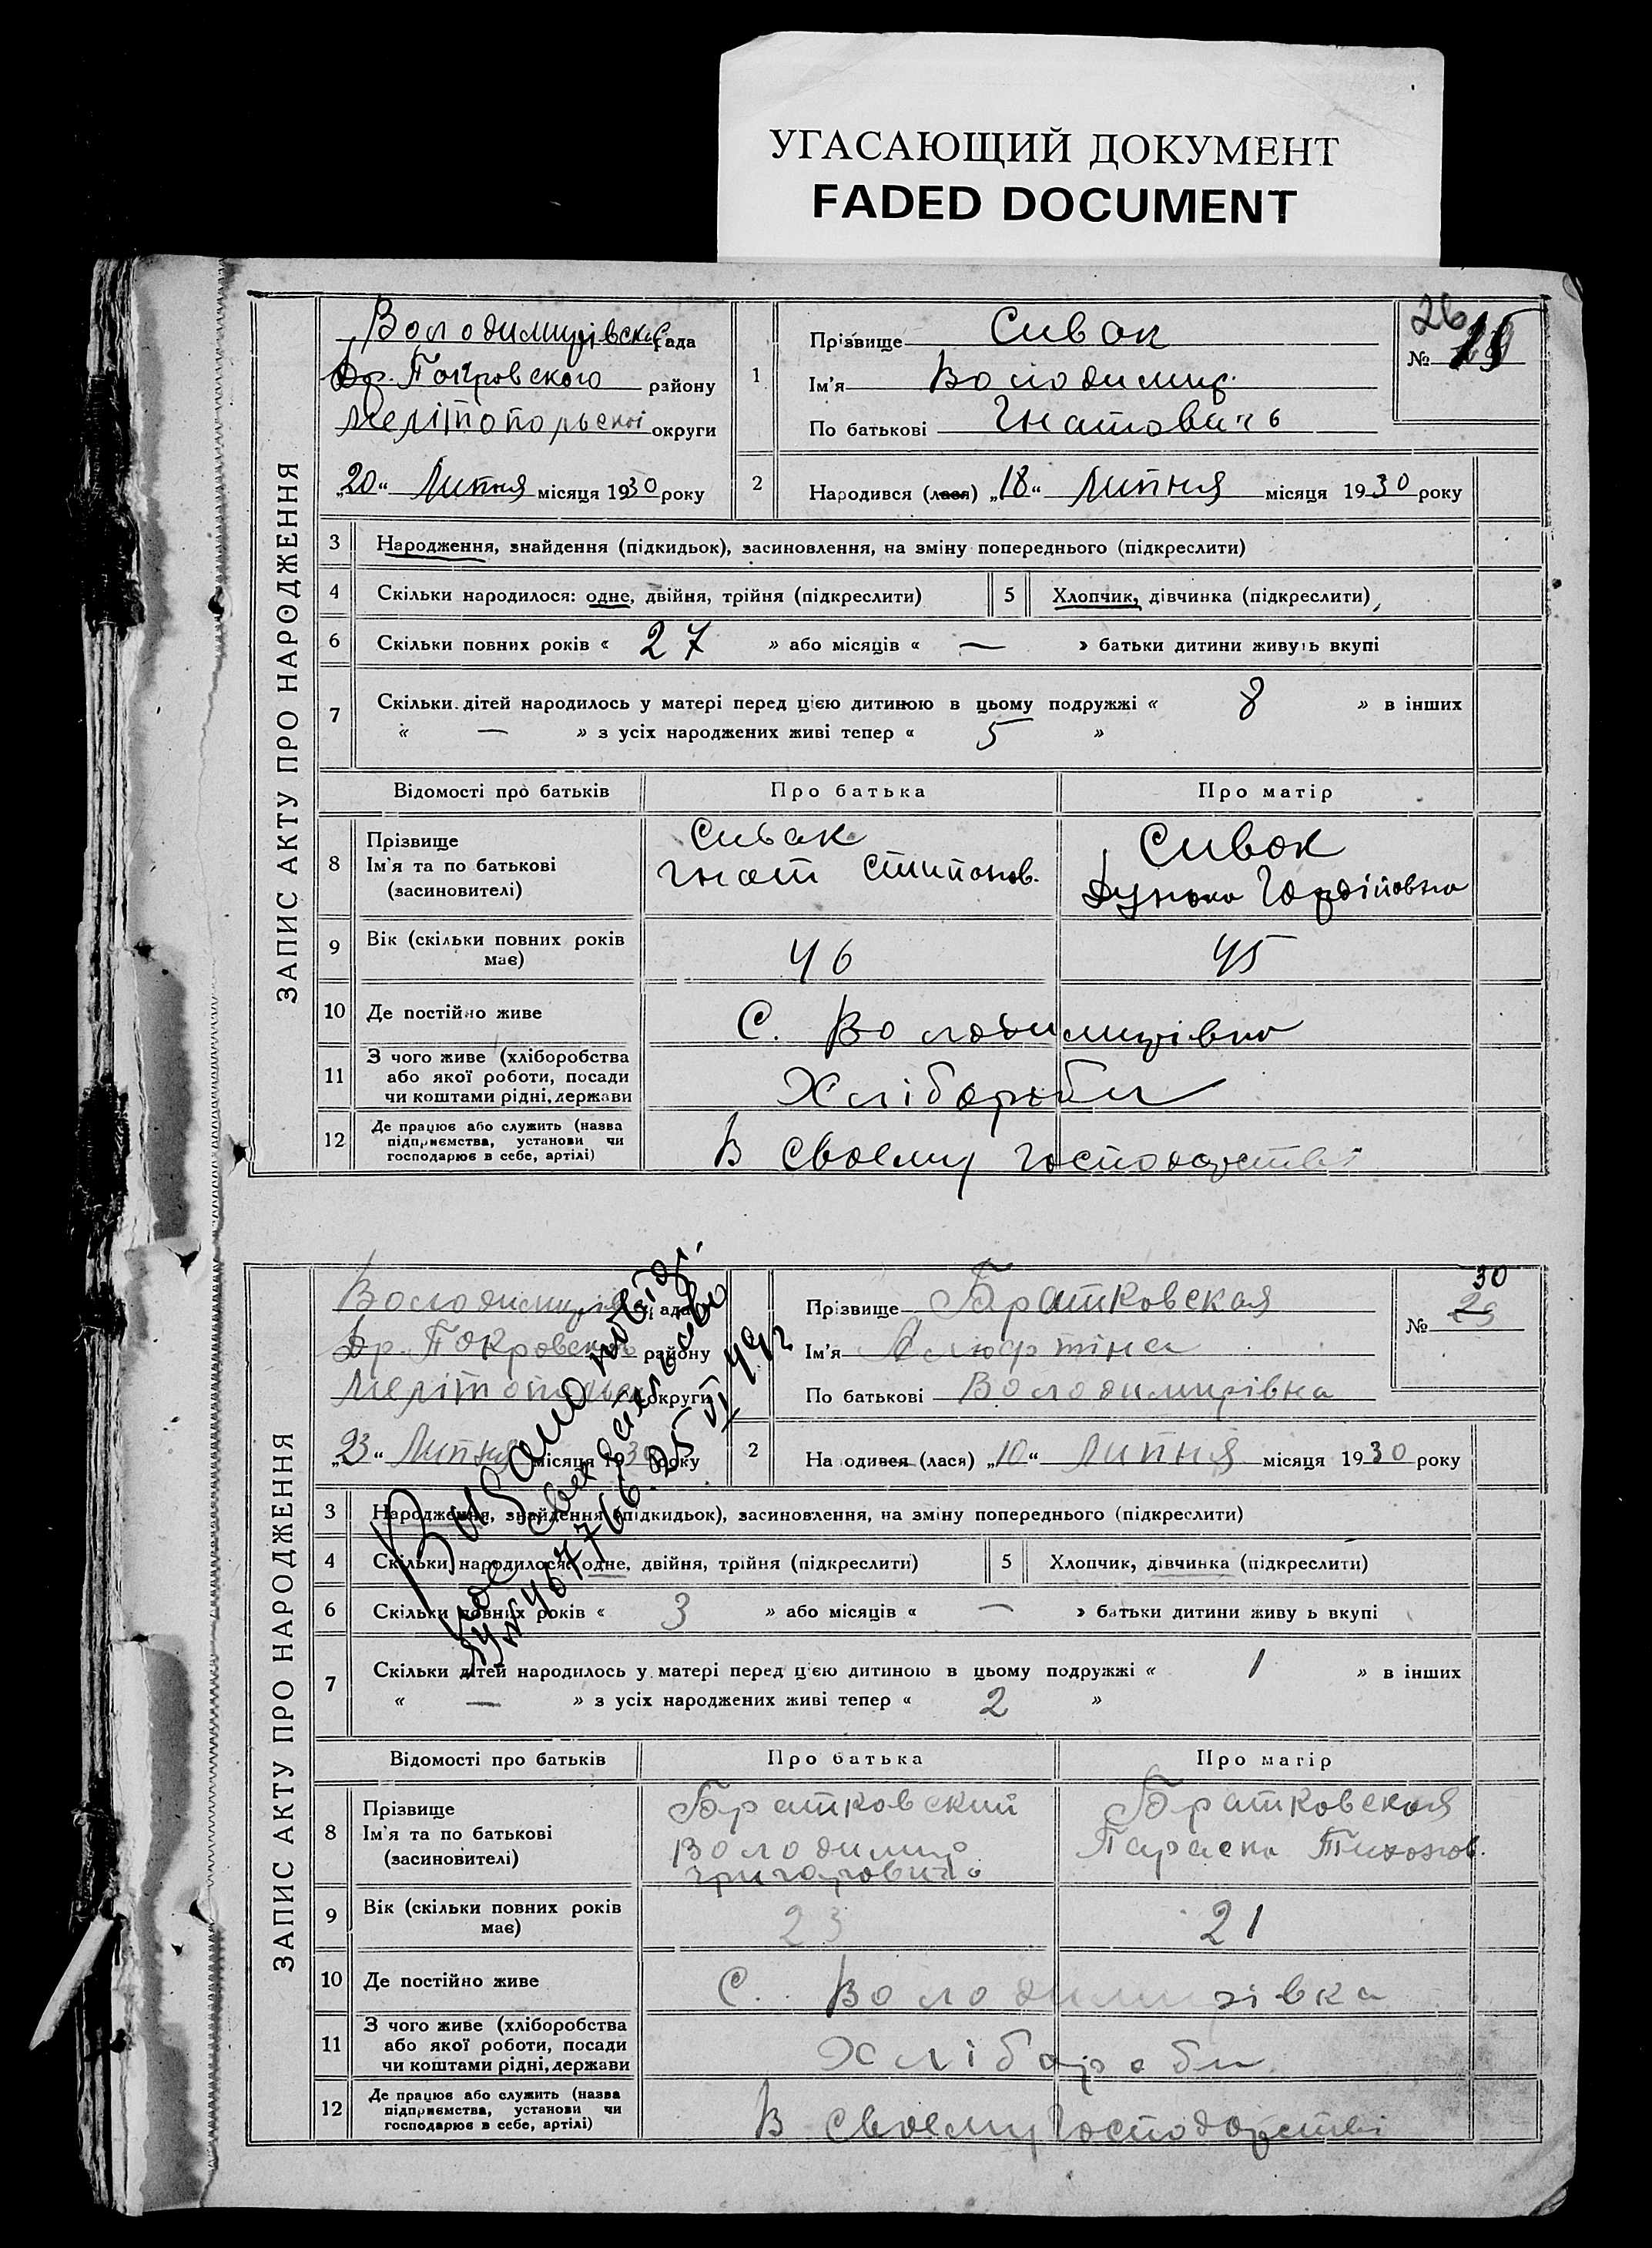 УГАСАЮЩИЙ ДОКУМЕНТ
FADED DOCUMENT
ЗАПИС АКТУ ПРО НАРОДЖЕННЯ
Володимирівська рада
Др. Покровского району
Мелітопольскої округи
„20“ Липня місяця 1930 року
1
Прізвище Сивак
Ім'я Володимир.
По батькові Гнатовичь
26
№
2
Народився (лася) „18“ Липня місяця 1930 року
3 Народження, знайдення (підкидьок), засиновлення, на зміну попереднього (підкреслити)
4 Скільки народилося: одне, двійня, трійня (підкреслити)
5 Хлопчик, дівчинка (підкреслити)
6 Скільки повних років « 27 » або місяців « — » батьки дитини живуть вкупі
7 Скільки дітей народилось у матері перед цією дитиною в цьому подружжі « 8 » в інших
« — » з усіх народжених живі тепер « 5 »
Відомості про батьків Про батька Про матір
8 Прізвище
Ім'я та по батькові
(засиновителі)
Сивак
Гнат Стипанов.
Сивак
Дунька Гордійовна
9 Вік (скільки повних років
має)
46 45
10 Де постійно живе С. Володимирівка
11 З чого живе (хліборобства
або якої роботи, посади
чи коштами рідні, держави
Хлібороби
12 Де працює або служить (назва
підприємства, установи чи
господарює в себе, артілі)
В своему господарстві
ЗАПИС АКТУ ПРО НАРОДЖЕННЯ
Др. Покровского району
округи
„23“ Липня місяця 1930 року
Видано
№ 467766. 25
1
Прізвище Братковская
Ім'я Алюфтіна
По батькові Володимирівна
30
№ 29
2
Народився (лася) „10“ Липня місяця 1930 року
3 Народження, знайдення (підкидьок), засиновлення, на зміну попереднього (підкреслити)
4 Скільки народилося: одне, двійня, трійня (підкреслити)
5 Хлопчик, дівчинка (підкреслити)
6 Скільки повних років « 3 » або місяців « — » батьки дитини живу ь вкупі
7 Скільки дітей народилось у матері перед цією дитиною в цьому подружжі « 1 » в інших
« — » з усіх народжених живі тепер « 2 »
Відомості про батьків Про батька Про матір
8 Прізвище
Ім'я та по батькові
(засиновителі)
Братковский
Володимир
Григорович
Братковская
Параска Тихонов.
9 Вік (скільки повних років
має)
23 21
10 Де постійно живе С. Володимирівка
11 З чого живе (хліборобства
або якої роботи, посади
чи коштами рідні, держави
Хлібороби
12 Де працює або служить (назва
підприємства, установи чи
господарює в себе, артілі)
В своему господарстві